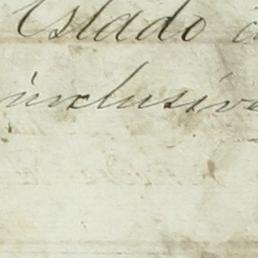 Estado
inclusive